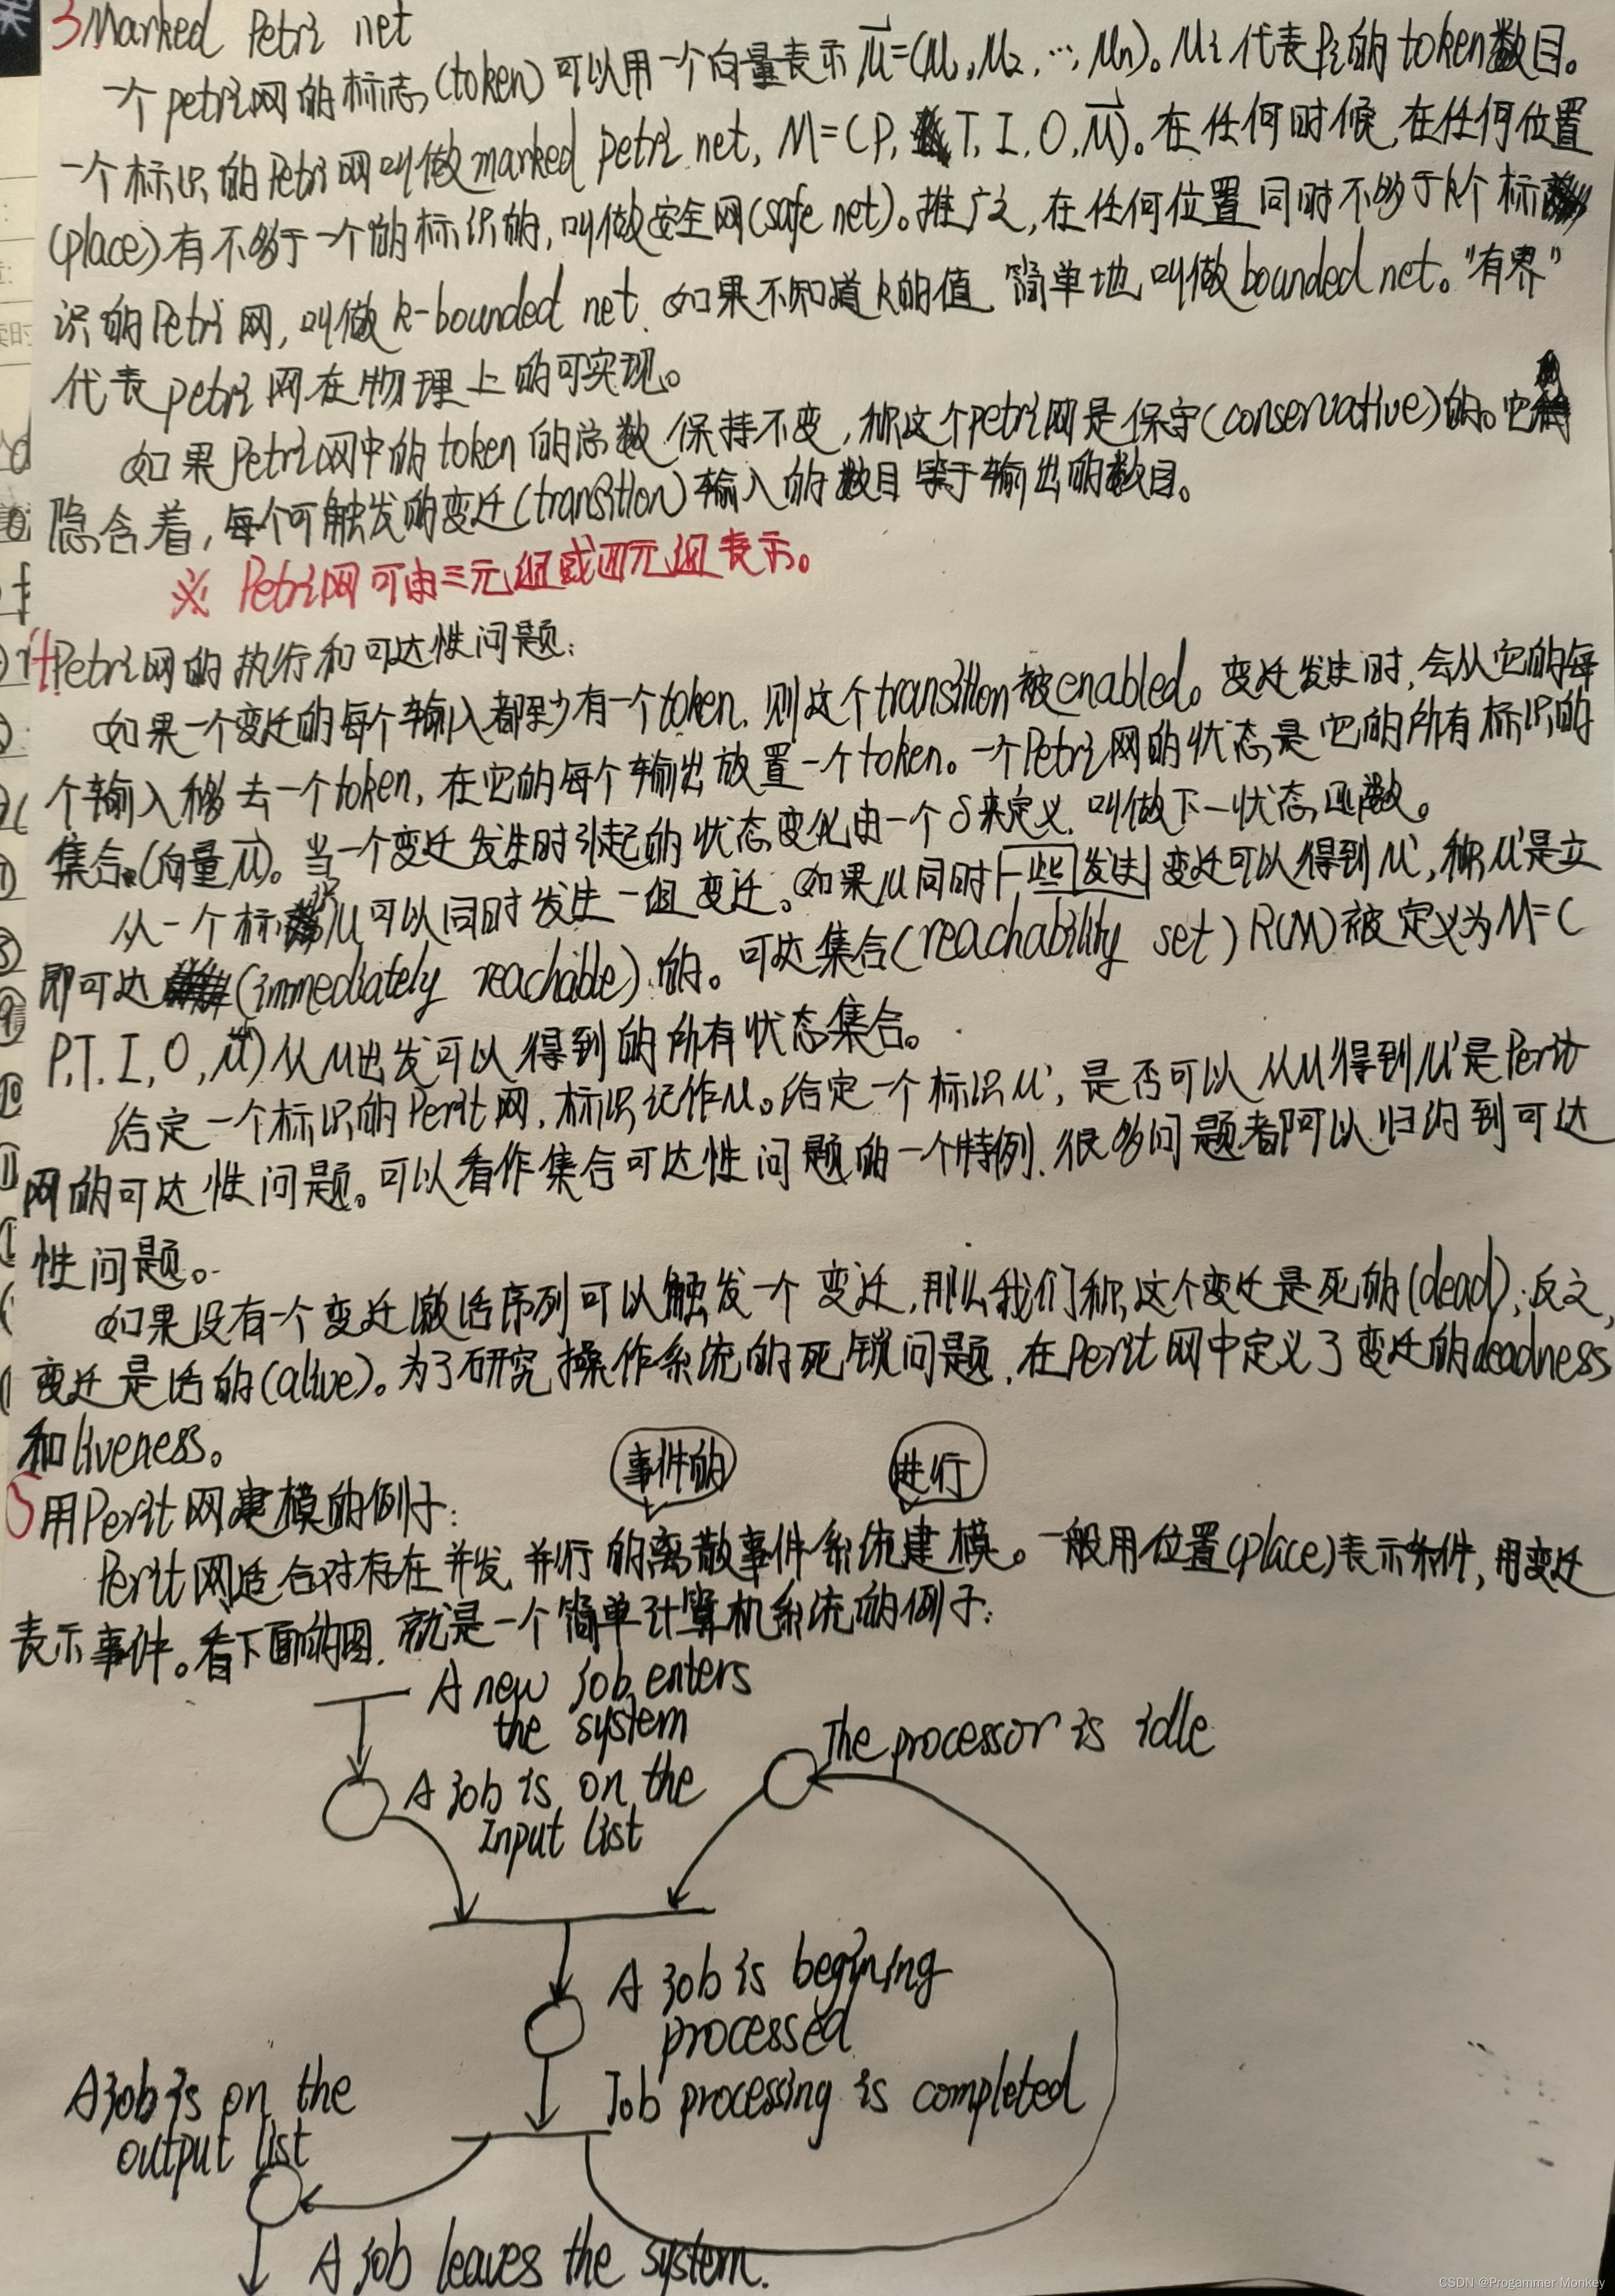 3 Marked Petri net
一个petri网的标志(token)可以用一个向量表示μ=(μ1,μ2,…,μn)。μi代表Pi的token数目。
一个标识的Petri网叫做marked petri net, M=(P, T, I, O, μ)。在任何时候,在任何位置
(place)有不多于一个的标识的,叫做安全网(safe net)。推广之,在任何位置同时不多于k个标
识的Petri网,叫做k-bounded net. 如果不知道k的值, 简单地叫做bounded net。"有界"
代表petri网在物理上的可实现。
如果Petri网中的token的总数保持不变,称这个petri网是保守(conservative)的。它
隐含着,每个可触发的变迁(transition)输入的数目等于输出的数目。
※ Petri网可由三元组或四元组表示。
4 Petri网的执行和可达性问题:
如果一个变迁的每个输入都至少有一个token, 则这个transition被enabled。变迁发生时,会从它的每
个输入移去一个token, 在它的每个输出放置一个token。一个Petri网的状态是它的所有标识的
集合(向量μ)。当一个变迁发生时引起的状态变化由一个δ来定义, 叫做下一状态函数。
从一个标识μ可以同时发生一组变迁。如果μ同时发生一些变迁可以得到μ',称μ'是立
即可达(immediately reachable)的。可达集合(reachability set) R(M)被定义为M=(
P, T, I, O, μ)从μ出发可以得到的所有状态集合。
给定一个标识的Perit网,标识记作μ。给定一个标识μ', 是否可以从μ得到μ'是Perit
网的可达性问题。可以看作集合可达性问题的一个特例. 很多问题都可以归约到可达
性问题。
如果没有一个变迁激活序列可以触发一个变迁,那么我们称这个变迁是死的(dead);反之,
变迁是活的(alive)。为了研究操作系统的死锁问题, 在Perit网中定义了变迁的deadness
和liveness。
事件的 进行
5 用Perit网建模的例子:
Perit网适合对存在并发、并行的离散事件系统建模。一般用位置(place)表示条件,用变迁
表示事件。看下面的图, 就是一个简单计算机系统的例子:
A new job enters
the system
The processor is idle
A job is on the
Input list
A job is begining
processed
Job processing is completed
A job is on the
output list
A job leaves the system.
CSDN @Progammer Monkey